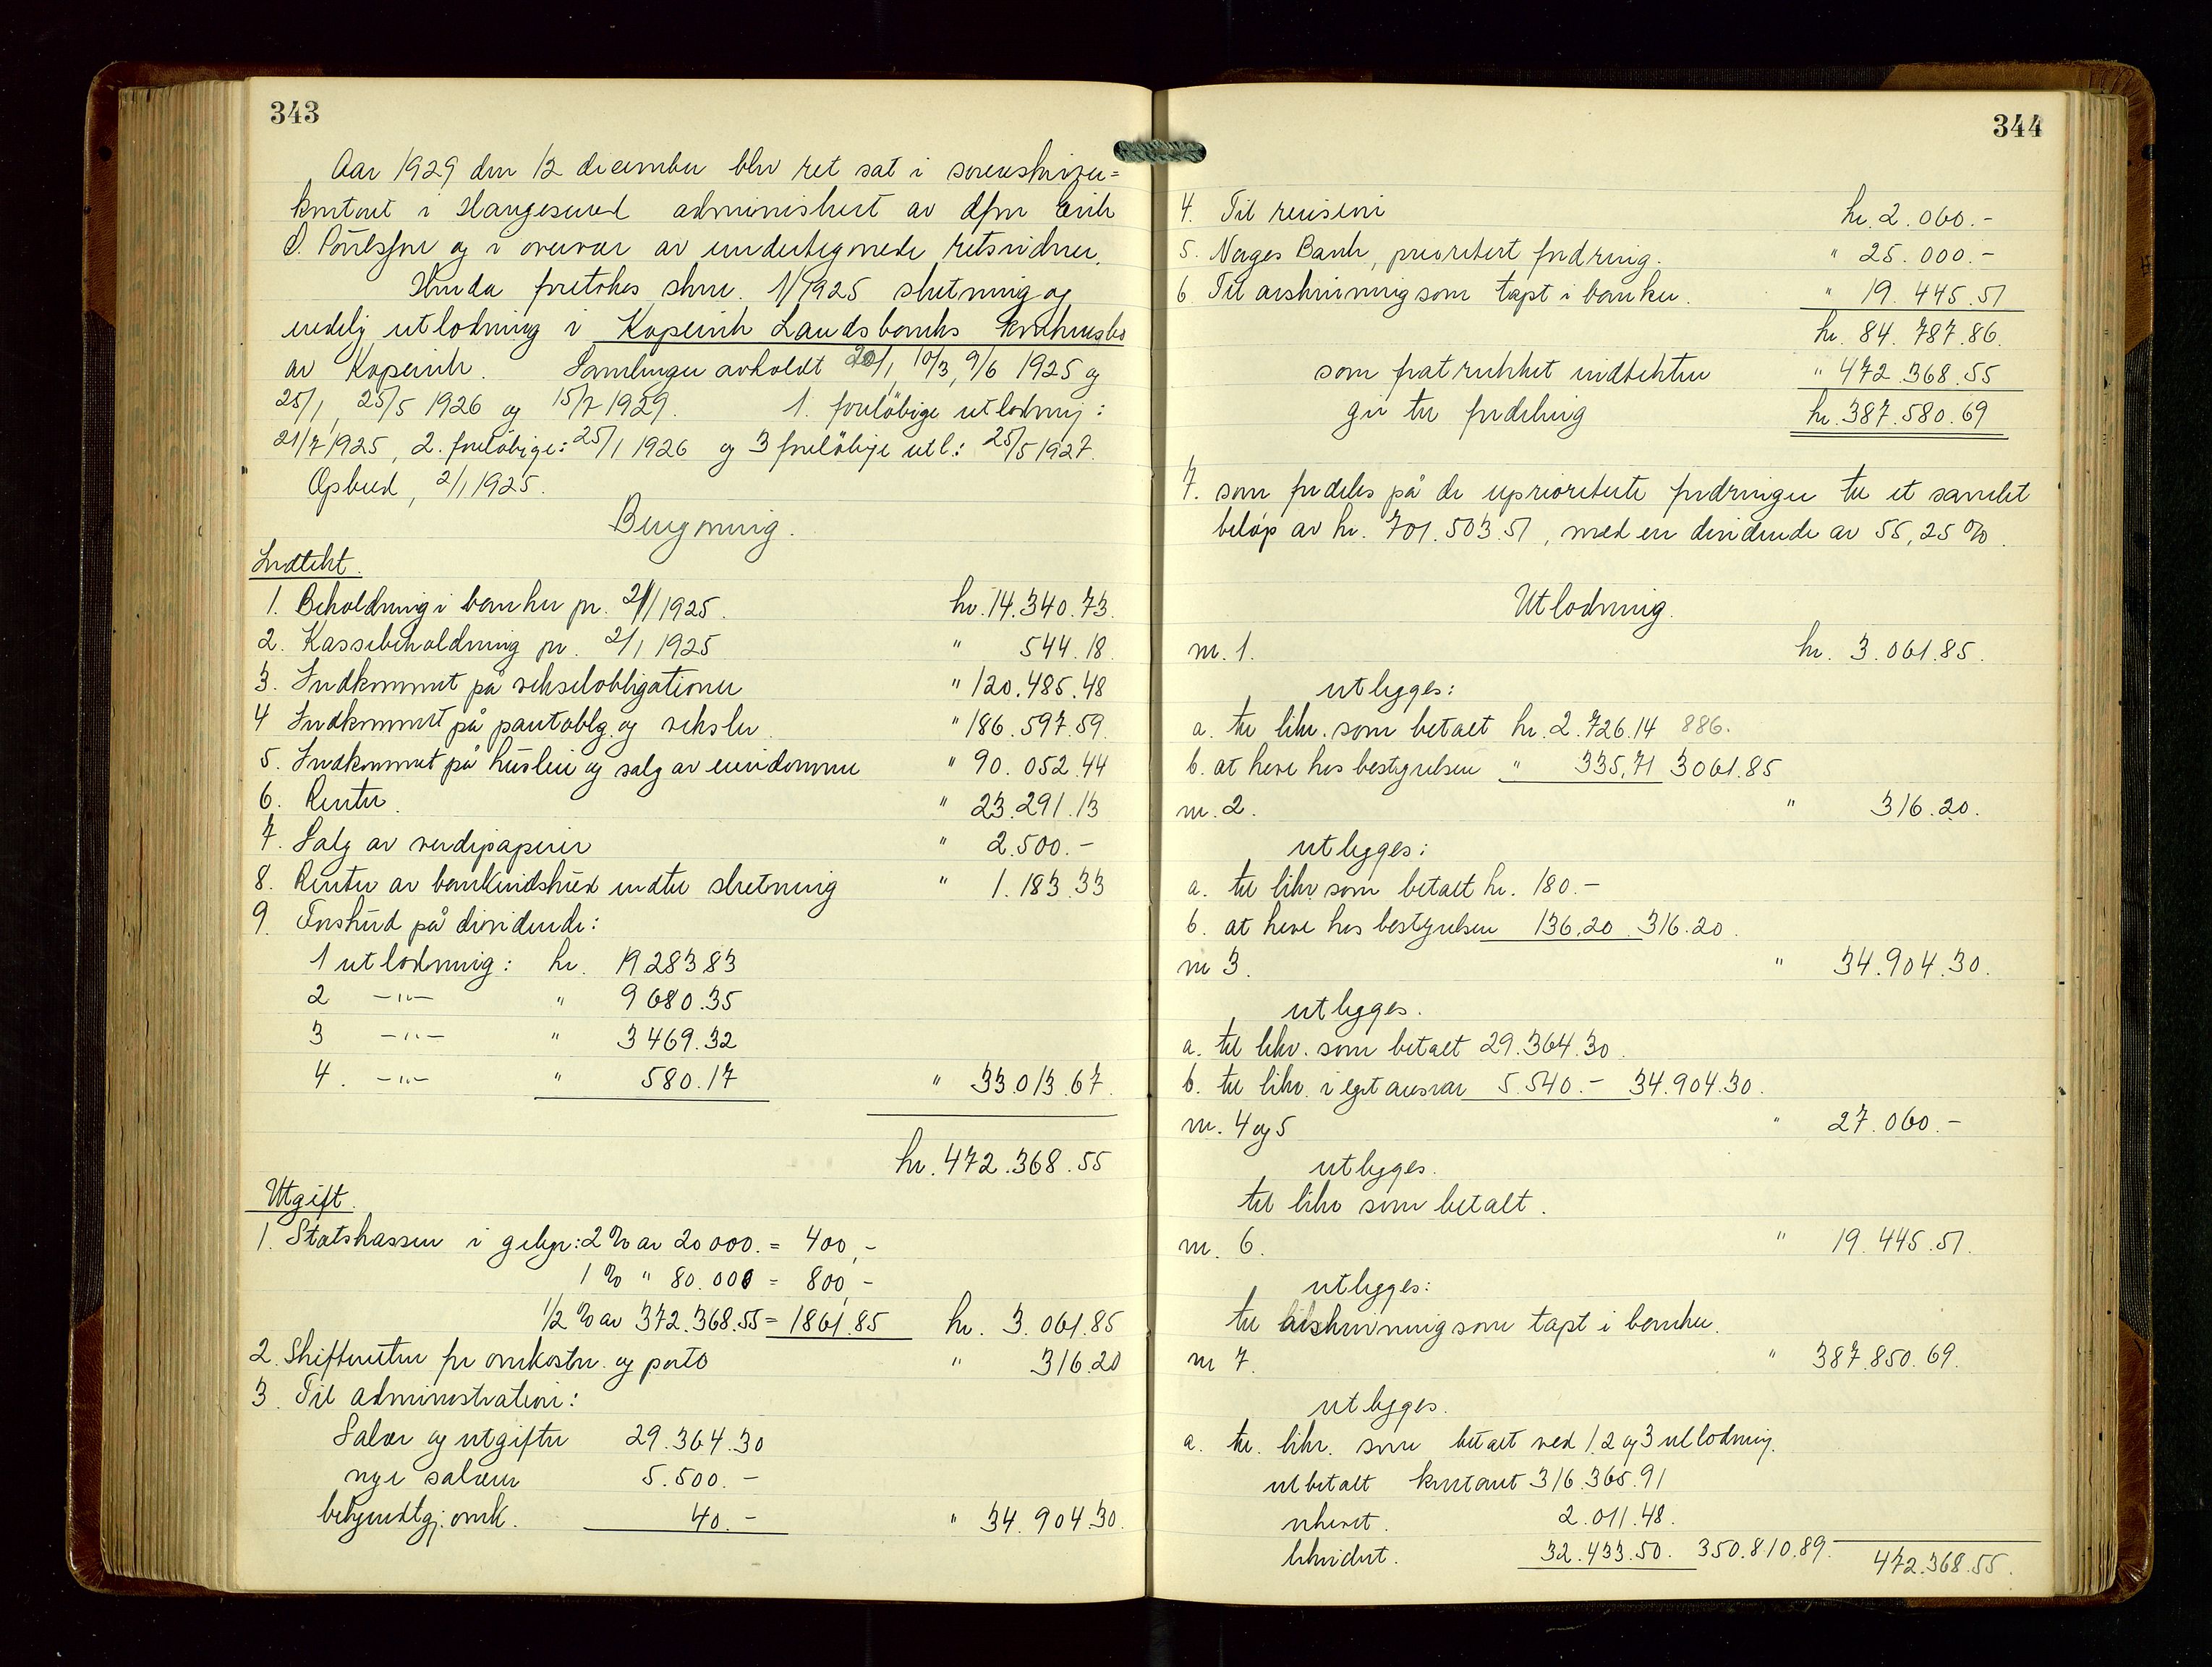 343
Aar 1929 den 12 december blev ret sat i sorenskriver=
kontoret i Haugesund administrert av dfm Erik
S. Poulsson og i overvær av undertegnede retsvidner.
Hvorda foretokes skm. 1/1925 slutning og
endelig utlodning i Kopervik Landsbanks konkursbo
av Kopervik. Samlinger avholdt 20/1, 10/3, 9/6 1925 og
25/1, 25/5 1926 og 15/7 1929. 1. foreløbige utlodning:
21/7 1925, 2. foreløbige: 25/1 1926 og 3 foreløbige utl.: 25/5 1927.
Opbud, 2/1 1925.
Beregning.
Indtekt.
1. Beholdning i banker pr. 2/1 1925. kr. 14.340.73.
2. Kassebeholdning pr. 2/1 1925 " 544.18.
3. Indkommet på vekselobligationer " 120.485.48
4 Indkommet på pantoblg. og veksler. " 186.597.59.
5. Indkommet på husleie og salg av eiendomme " 90.052.44
6. Renter. " 23.291.13
7. Salg av verdipapirer " 2.500.-
8. Renter av bankindskud indtil slutning " 1.183.33
9. Forskud på dividende:
1 utlodning: kr. 19283 83
2 -"- " 9680.35
3 -"- " 3469.32
4. -"- " 580.17 " 33.013.67.
kr. 472.368.55
Utgift.
1. Statskassen i gebyr: 2 % av 20000. = 400,-
1 % " 80.000 = 800,-
1/2 % av 372.368.55 = 1861.85 kr. 3.061.85
2. Skifteretten for omkostn. og porto " 316.20
3. Til administration:
Salær og utgifter 29.364.30
nye salærer 5.500.-
bekjendtgj. omk. 40.- " 34.904.30.
344
4. Til revision kr. 2.060.-
5. Norges Bank, prioritert fordring. " 25.000.-
6 Til avskrivning som tapt i banker. " 19.445.51
kr. 84.787.86.
som fratrukket indtekter " 472.368.55
gir til fordeling kr. 387.580.69
7. som fordeles på de uprioriterte fordringer til et samlet
beløp av kr. 701.503.51, med en dividende av 55,25 %.
Utlodning.
nr. 1. kr. 3.061.85.
utlegges:
a. til likv. som betalt kr. 2.726.14 886.
b. at heve hos bestyrelsen " 335,71 3061.85
nr. 2. " 316.20.
utlegges:
a. til likv. som betalt kr. 180.-
b. at heve hos bestyrelsen 136,20 316.20.
nr 3. " 34.904.30.
utlegges.
a. til likv. som betalt 29.364.30.
b. til likv. i eget ansvar 5.540.- 34.904.30.
nr. 4 og 5 " 27.060.-
utlegges.
til likv som betalt.
nr. 6. " 19.445.51.
utlegges:
til avskrivning som tapt i banker.
nr 7. " 387.850.69.
utlegges.
a. til likv. som betalt ved 1.2 og 3 utlodning.
utbetalt kontant 316.365.91
uhevet. 2.011.48.
likvidert. 32.433.50. 350.810.89. 472.368.55.